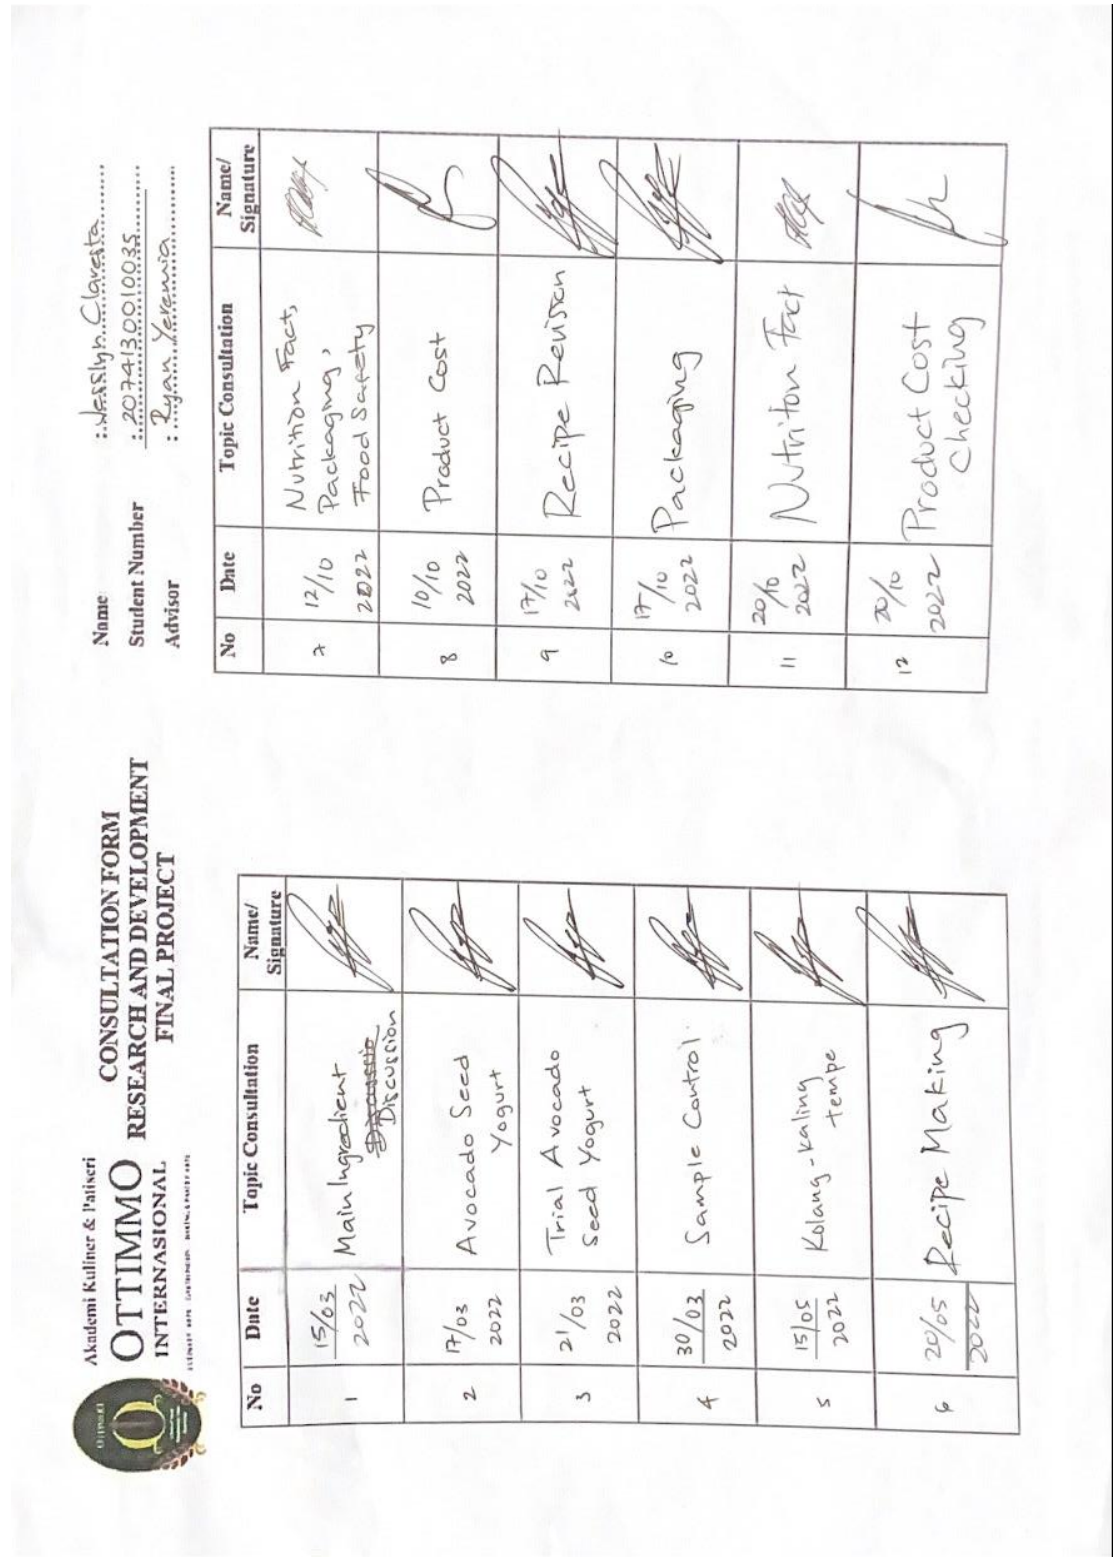 Akademi Kuliner & Patiseri
OTTIMMO
INTERNASIONAL
CONSULTATION FORM
RESEARCH AND DEVELOPMENT
FINAL PROJECT
Name : Jesslyn Claresta
Student Number : 2074130010035
Advisor : Ryan Yeremia
No Date Topic Consultation Name/
Signature
1 15/03 Main Ingredient
2022 Discussion
2 17/03 Avocado Seed
2022 Yogurt
3 21/03 Trial Avocado
2022 Seed Yogurt
4 30/03 Sample Control
2022
5 15/05 Kolang-kaling
2022 tempe
6 20/05 Recipe Making
2022
No Date Topic Consultation Name/
Signature
7 12/10 Nutrition Fact,
Packaging,
2022 Food Safety
8 10/10 Product Cost
2022
9 17/10 Recipe Revision
2022
10 17/10 Packaging
2022
11 20/10 Nutriton Fact
2022
12 20/10 Product Cost
2022 Checking